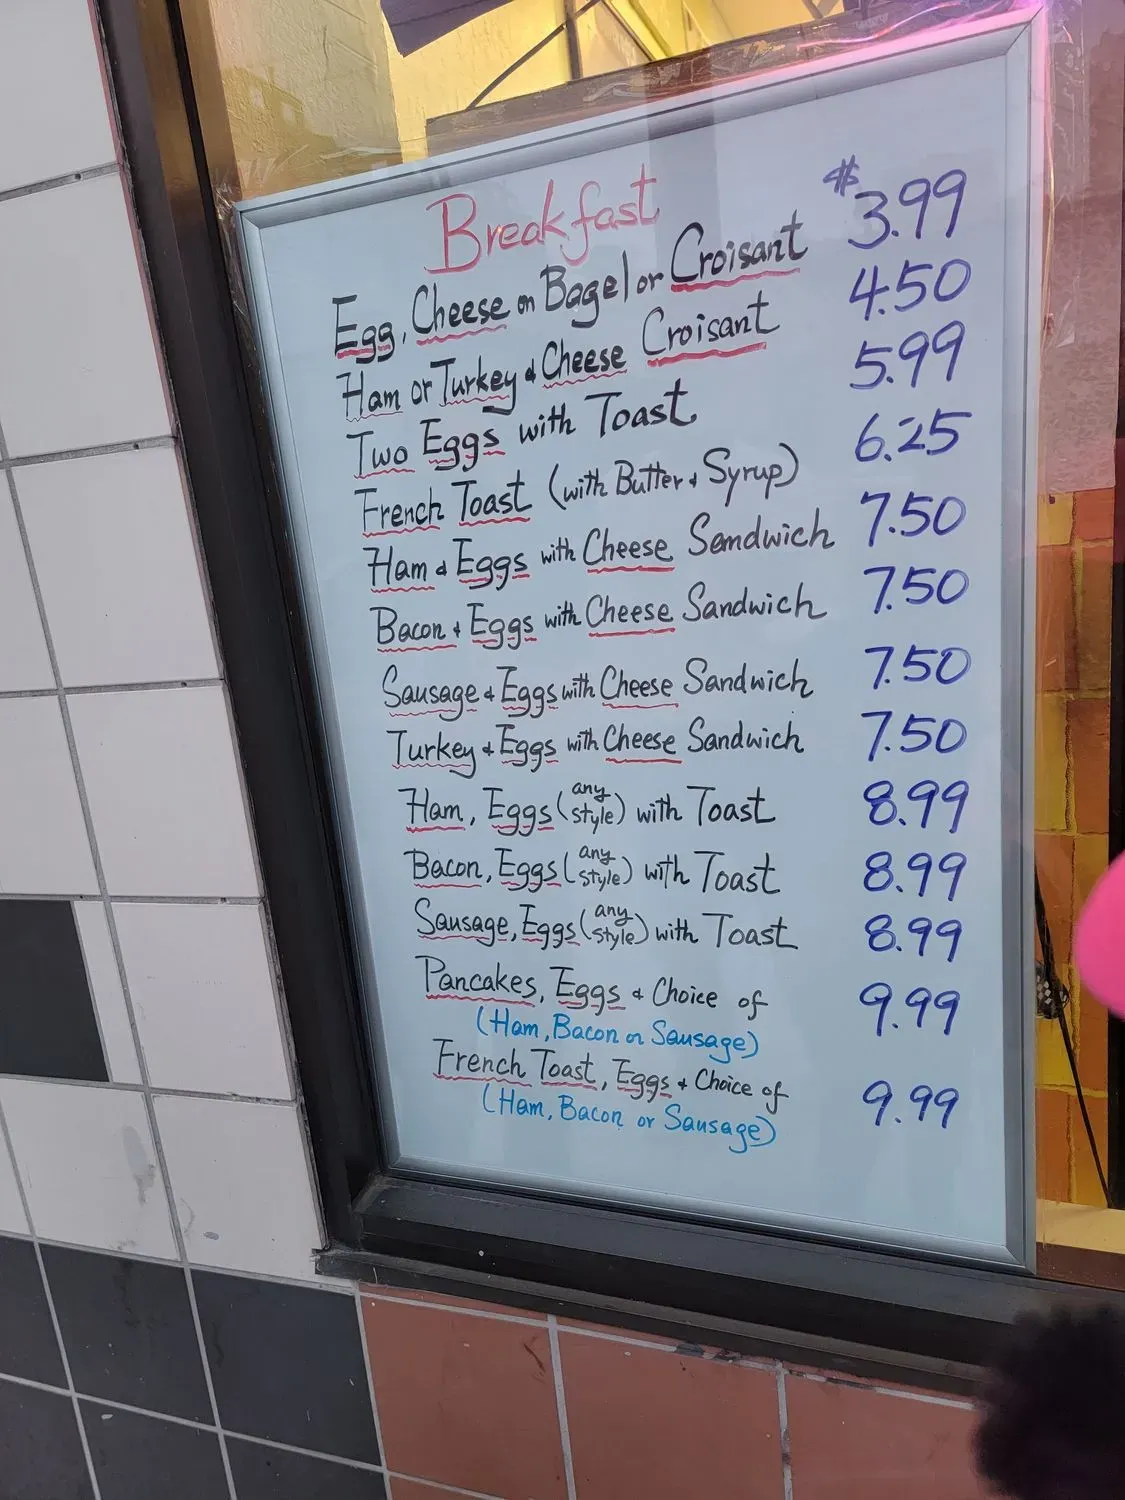 Breakfast
Egg, Cheese on Bagel or Croisant $3.99
Ham or Turkey & Cheese Croisant 4.50
Two Eggs with Toast 5.99
French Toast (with Butter & Syrup) 6.25
Ham & Eggs with Cheese Sandwich 7.50
Bacon & Eggs with Cheese Sandwich 7.50
Sausage & Eggs with Cheese Sandwich 7.50
Turkey & Eggs with Cheese Sandwich 7.50
Ham, Eggs (any style) with Toast 8.99
Bacon, Eggs (any style) with Toast 8.99
Sausage, Eggs (any style) with Toast 8.99
Pancakes, Eggs & Choice of 9.99
(Ham, Bacon or Sausage)
French Toast, Eggs & Choice of 9.99
(Ham, Bacon or Sausage)